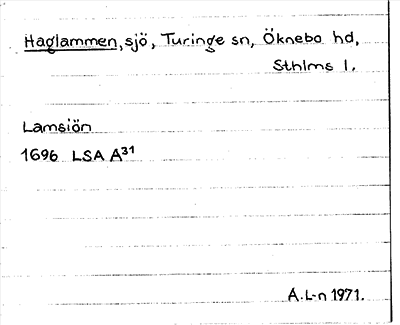 Haglammen, sjö, Turinge sn, Öknebo hd,
Sthlms l.
Lamsiön
1696 LSA A31
A.L-n 1971.